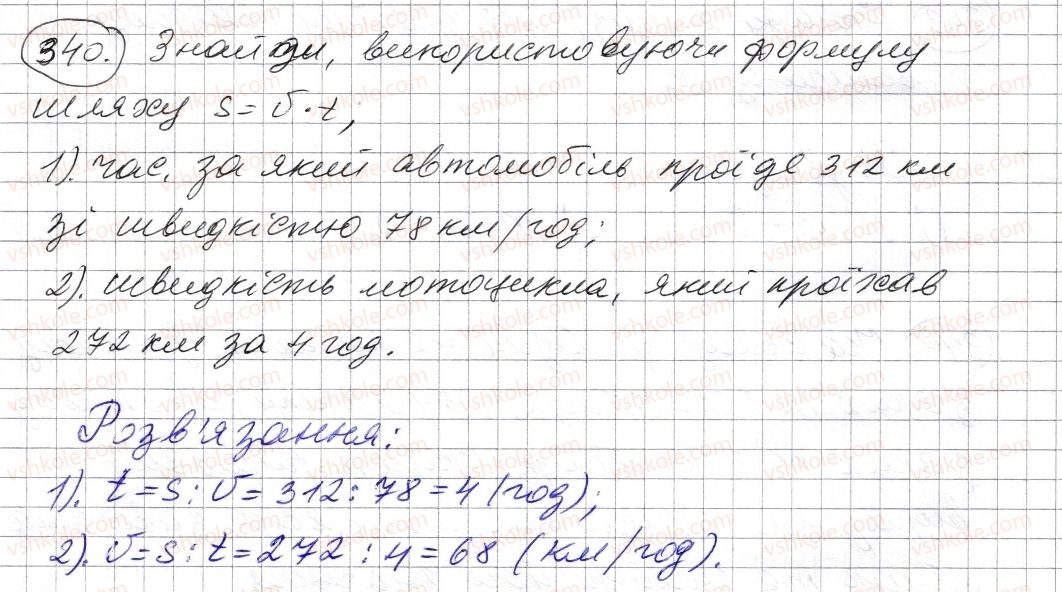 340. Знайди, використовуючи формулу
шляху s = v · t;
1). час, за який автомобіль проїде 312 км
зі швидкістю 78 км/год;
2). швидкість мотоцикла, який проїхав
272 км за 4 год.
Розв'язання:
1). t = s : v = 312 : 78 = 4 (год);
2). v = s : t = 272 : 4 = 68 (км/год).